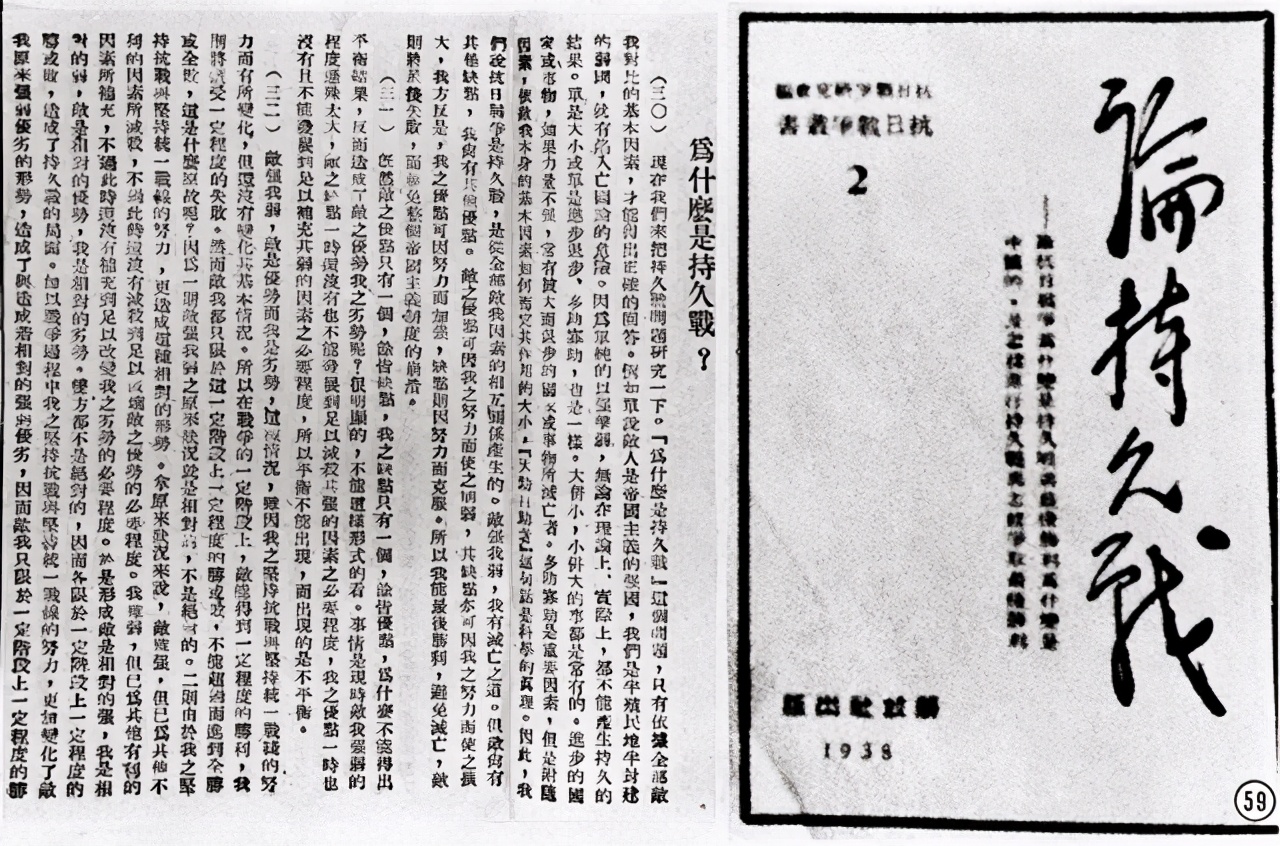 論持久戰
——論抗日戰爭為什麼是持久戰與最後勝利為什麼是
中國的，並怎樣進行持久戰與怎樣爭取最後勝利
抗日戰爭研究會編
抗日戰爭叢書
2
解放社出版
1938
59
爲什麼是持久戰？
（三〇） 現在我們來把持久戰問題研究一下。『爲什麼是持久戰』這個問題，只有依據全部敵
我對比的基本因素，才能得出正確的回答。例如單說敵人是帝國主義的強國，我們是半殖民地半封建
的弱國，就有陷入亡國論的危險。因爲單純的以強擊弱，無論在理論上、實際上，都不能產生持久的
結果。單是大小或單是進步退步、多助寡助，也是一樣。大併小，小併大的事都是常有的。進步的國
家或事物，如果力量不強，常有被大而退步的國家或事物所滅亡者。多助寡助是重要因素，但是附隨
因素，依敵我本身的基本因素如何而定其作用的大小。『天助自助者』這句話是科學的眞理。因此，我
們說抗日戰爭是持久戰，是從全部敵我因素的相互關係產生的。敵強我弱，我有滅亡之道。但敵尙有
其他缺點，我尙有其他優點。敵之優點可因我之努力而使之削弱，其缺點亦可因我之努力而使之擴
大，我方反是，我之優點可因努力而加強，缺點則因努力而克服。所以我能最後勝利，避免滅亡，敵
則將最後失敗，而難免整個帝國主義制度的崩潰。
（三一） 旣然敵之優點只有一個，餘皆缺點，我之缺點只有一個，餘皆優點，爲什麼不能得出
平衡結果，反而造成了敵之優勢我之劣勢呢？很明顯的，不能這樣形式的看。事情是現時敵我強弱的
程度懸殊太大，敵之缺點一時還沒有也不能發展到足以減殺其強的因素之必要程度，我之優點一時也
沒有且不能發展到足以補充其弱的因素之必要程度，所以平衡不能出現，而出現的是不平衡。
（三二） 敵強我弱，敵是優勢而我是劣勢，這種情況，雖因我之堅持抗戰與堅持統一戰綫的努
力而有所變化，但還沒有變化其基本情況。所以在戰爭的一定階段上，敵能得到一定程度的勝利，我
則將遭受一定程度的失敗。然而敵我都只限於這一定階段上一定程度的勝或敗，不能超過而進到全勝
或全敗，這是什麼緣故呢？因爲一則敵強我弱之原來狀況就是相對的，不是絕對的。二則由於我之堅
持抗戰與堅持統一戰線的努力，更造成這種相對的形勢。拿原來狀況來說，敵雖強，但已爲其他不
利的因素所減殺，不過此時還沒有減殺到足以破壞敵之優勢的必要程度。我雖弱，但已爲其他有利的
因素所補充，不過此時還沒有補充到足以改變我之劣勢的必要程度。於是形成敵是相對的強，我是相
對的弱，敵是相對的優勢，我是相對的劣勢。雙方都不是絕對的，因而各限於一定階段上一定程度的
勝或敗，造成了持久戰的局面。加以戰爭過程中我之堅持抗戰與堅持統一戰線的努力，更加變化了敵
我原來強弱優劣的形勢，造成了與造成着相對的強弱優劣，因而敵我只限於一定階段上一定程度的勝